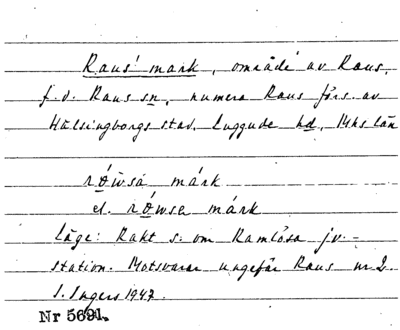 Raus' mark, område av Raus,
f.d. Raus sn, numera Raus förs. av
Hälsingborgs stad, Luggude hd, Mhs län
rówsa márk
el. rówse márk
Läge: Rakt s. om Ramlösa jv.-
station. Motsvarar ungefär Raus nr 2.
I. Ingers 1947.
Nr 5691.